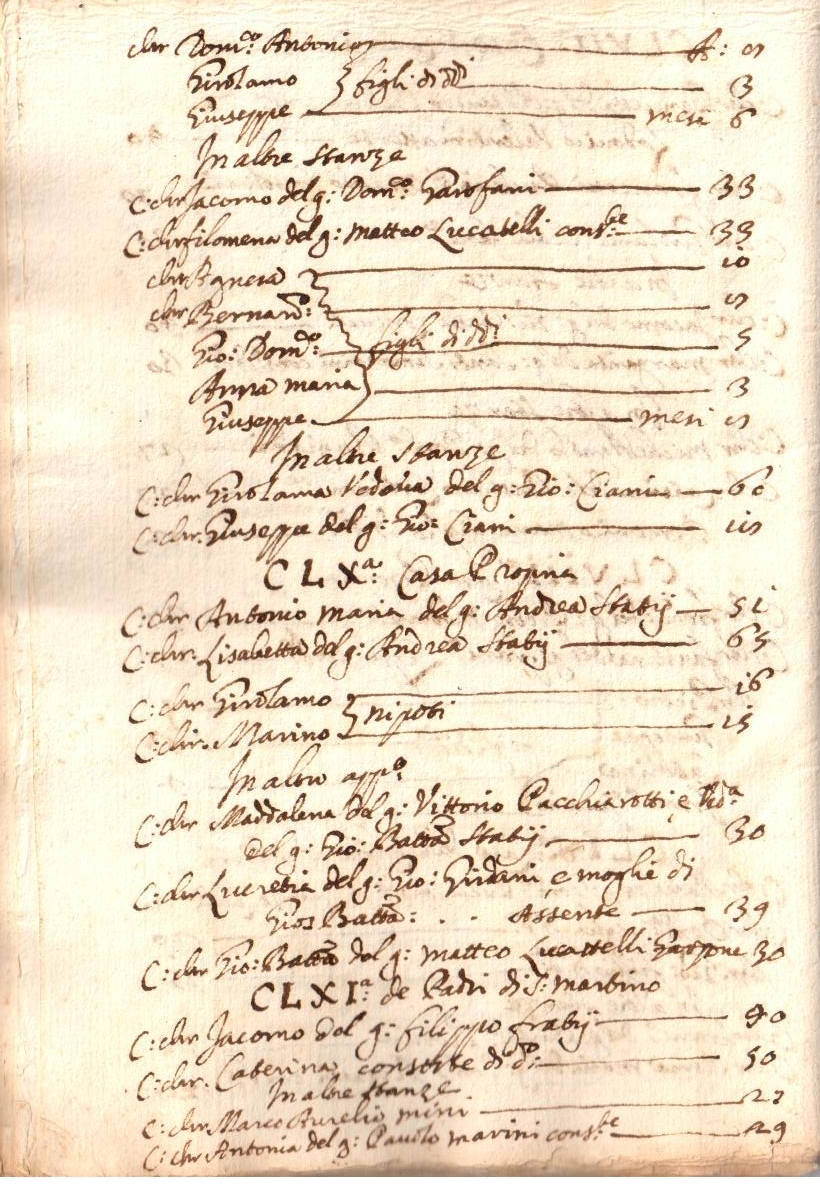 chr Dom:co Antonio A: 
Girolamo } figli di dd: 3
Giuseppe mesi 6
In altre stanze
C: chr Jacomo del q: Dom:co Garofani 33
C: chr filomena del q: Matteo Lucatelli cons:te 33
chr Agnesa 10
chr Bernard:o
Gio: Dom:co } figli di dd: 5
Anna maria 3
Giuseppe mesi
In altre stanze
C: chr Girolama Vedova del q: Gio: Ciani 60
C: chr: Giuseppe del q: Gio: Ciani
CLX:a Casa Propria
C: chr Antonio maria del q: Andrea Statij 51
C: chr: Lisabetta del q: Andrea Statij 65
C: chr Girolamo } nipoti 16
C: chr. Marino 15
In altro app:o
C: chr Maddalena del q: Vittorio Pacchiarotti e Ved:a
del q: Gio: Batta Statij 30
C: chr Lucretia del q: Gio: e moglie di
Gio: Batta: . . Assente 39
C: chr Gio: Batta del q: matteo Lucattelli Garzone 30
CLXI:a de Padri di S: martino
C: chr Jacomo del q: filippo fratij 40
C: chr. Caterina consorte di d:o 50
In altre stanze
C: chr Marco Aurelio mini 27
C: chr Antonia del q: Pauolo marini cons:te 29